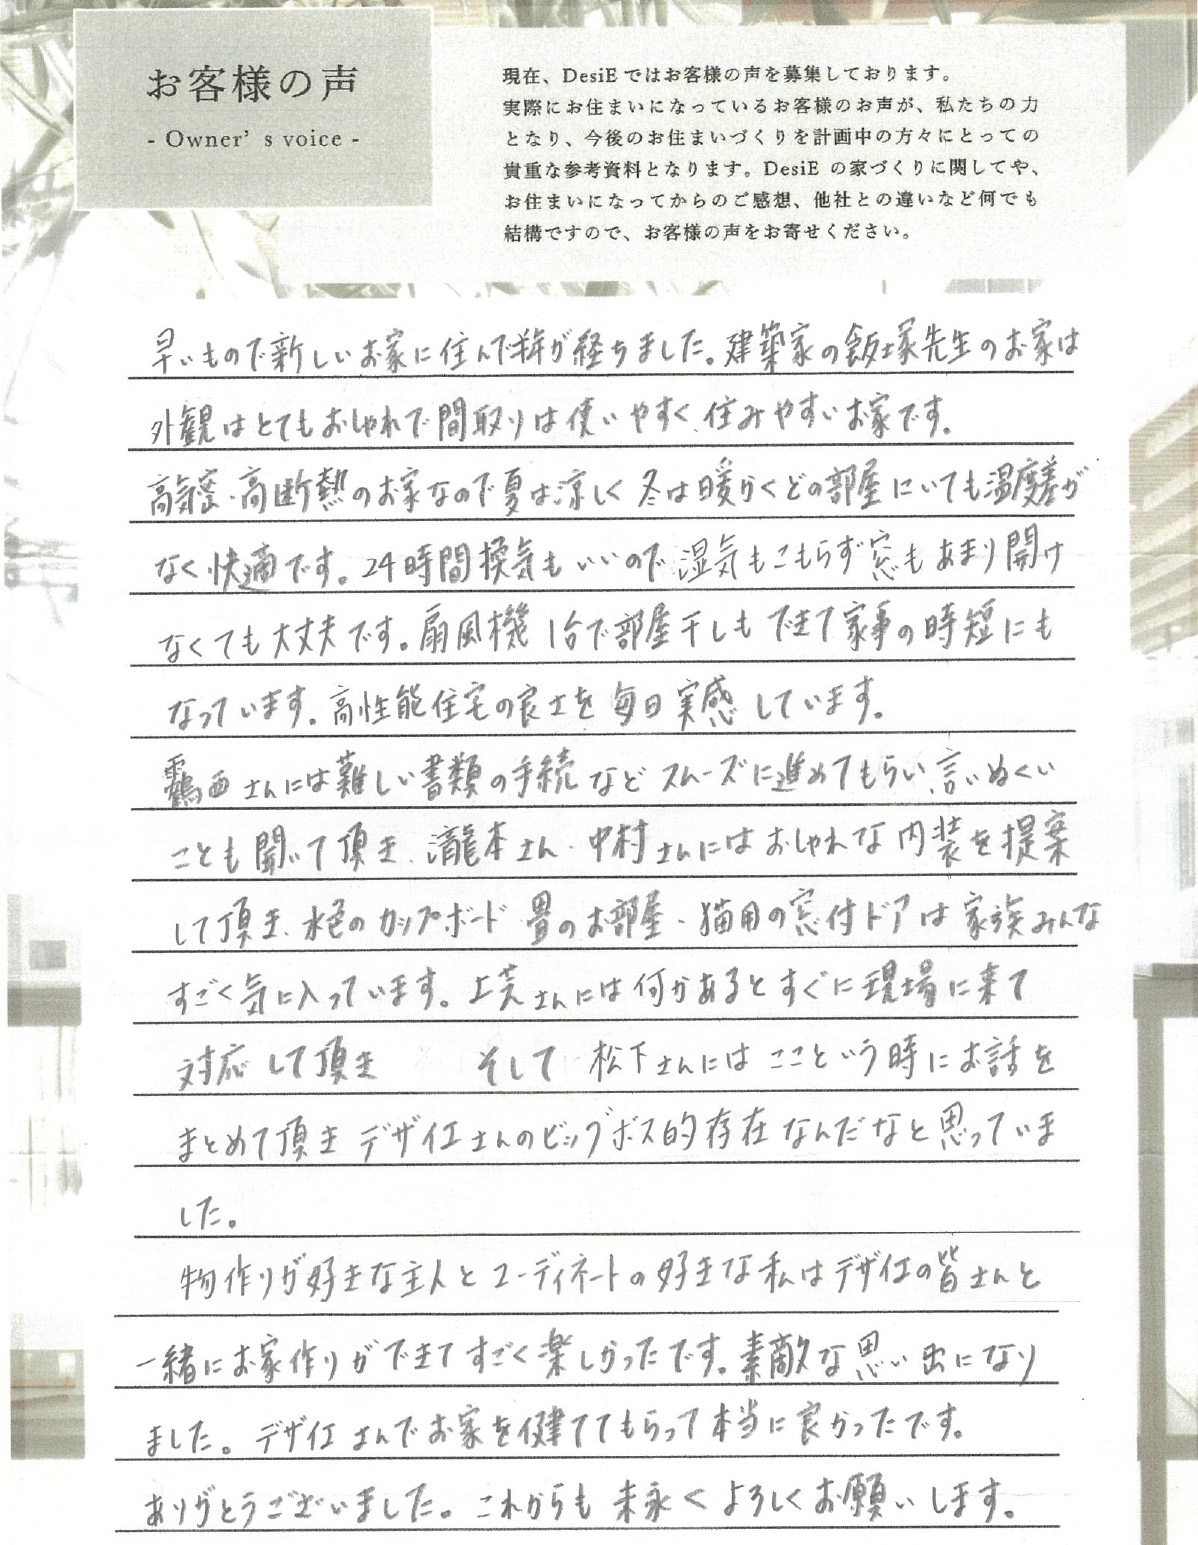 お客様の声
- Owner's voice -
現在、DesiEではお客様の声を募集しております。
実際にお住まいになっているお客様のお声が、私たちの力
となり、今後のお住まいづくりを計画中の方々にとっての
貴重な参考資料となります。DesiE の家づくりに関してや、
お住まいになってからのご感想、他社との違いなど何でも
結構ですので、お客様の声をお寄せください。
早いもので新しいお家に住んで半年が経ちました。建築家の飯塚先生のお家は
外観はとてもおしゃれで間取りは使いやすく、住みやすいお家です。
高気密・高断熱のお家なので夏は涼しく冬は暖かくどの部屋にいても温度差が
なく快適です。24時間換気もいいので湿気もこもらず窓もあまり開け
なくても大丈夫です。扇風機1台で部屋干しもできて家事の時短にも
なっています。高性能住宅の良さを毎日実感しています。
靍西さんには難しい書類の手続などスムーズに進めてもらい、言いぬくい
ことも聞いて頂き、瀧本さん・中村さんにはおしゃれな内装を提案
して頂き、水色のカップボード 畳のお部屋・猫用の窓付ドアは家族みんな
すごく気に入っています。上さんには何かあるとすぐに現場に来て
対応して頂き そして 松下さんにはここという時にお話を
まとめて頂き デザイエさんのビッグボス的存在なんだなと思っていま
した。
物作りが好きな主人とコーディネートの好きな私はデザイエの皆さんと
一緒にお家作りができてすごく楽しかったです。素敵な思い出になり
ました。デザイエさんでお家を健ててもらって本当に良かったです。
ありがとうございました。これからも末永くよろしくお願いします。